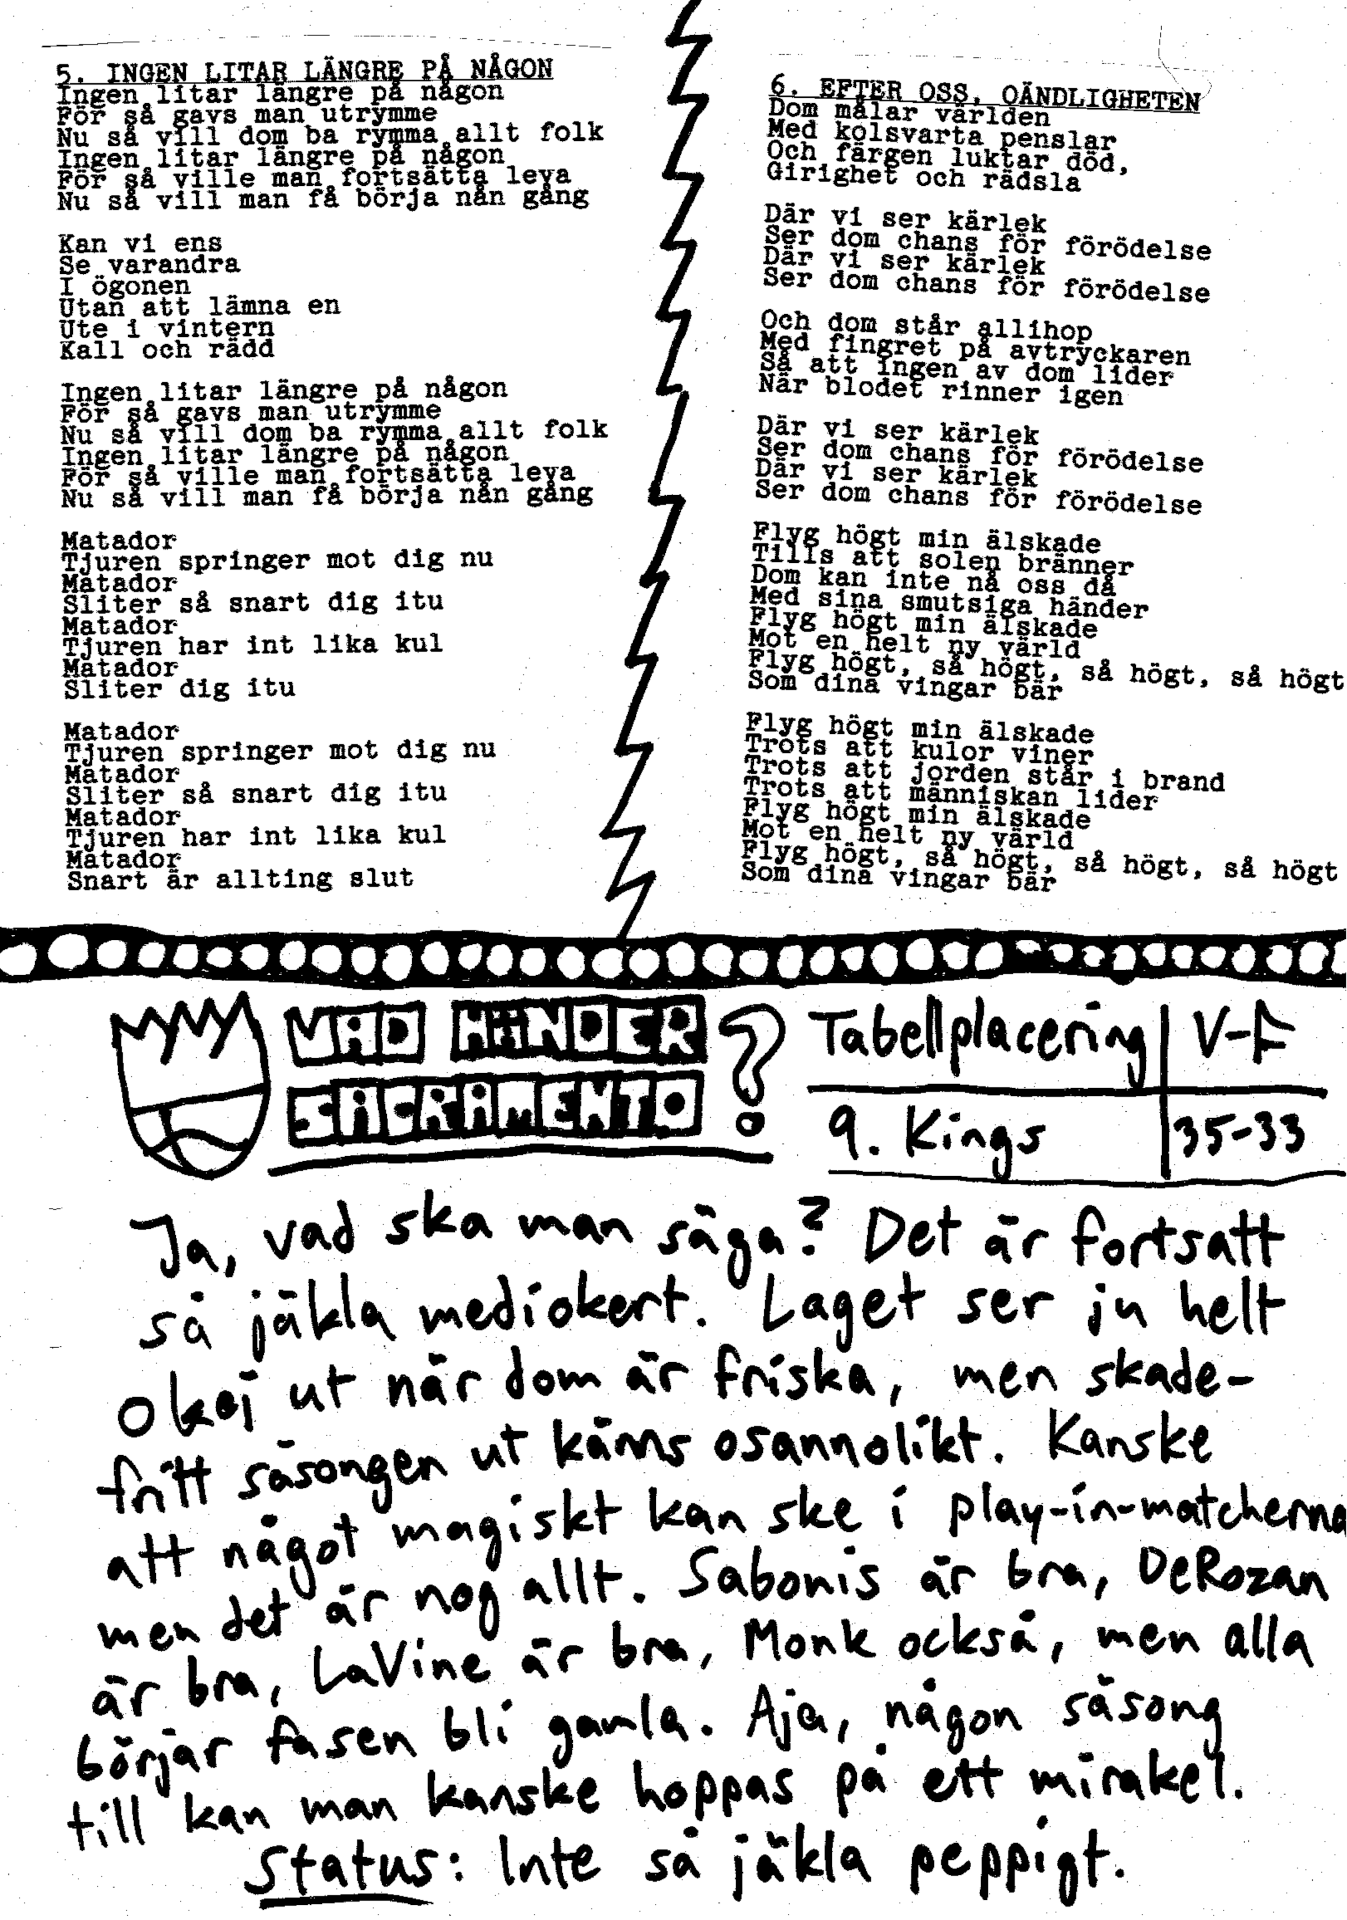 5. INGEN LITAR LÄNGRE PÅ NÅGON
Ingen litar längre på någon
För så gavs man utrymme
Nu så vill dom ba rymma allt folk
Ingen litar längre på någon
För så ville man fortsätta leva
Nu så vill man få börja nån gång
Kan vi ens
Se varandra
I ögonen
Utan att lämna en
Ute i vintern
Kall och rädd
Ingen litar längre på någon
För så gavs man utrymme
Nu så vill dom ba rymma allt folk
Ingen litar längre på någon
För så ville man fortsätta leva
Nu så vill man få börja nån gång
Matador
Tjuren springer mot dig nu
Matador
Sliter så snart dig itu
Matador
Tjuren har int lika kul
Matador
Sliter dig itu
Matador
Tjuren springer mot dig nu
Matador
Sliter så snart dig itu
Matador
Tjuren har int lika kul
Matador
Snart är allting slut
6. EFTER OSS, OÄNDLIGHETEN
Dom målar världen
Med kolsvarta penslar
Och färgen luktar död,
Girighet och rädsla
Där vi ser kärlek
Ser dom chans för förödelse
Där vi ser kärlek
Ser dom chans för förödelse
Och dom står allihop
Med fingret på avtryckaren
Så att ingen av dom lider
När blodet rinner igen
Där vi ser kärlek
Ser dom chans för förödelse
Där vi ser kärlek
Ser dom chans för förödelse
Flyg högt min älskade
Tills att solen bränner
Dom kan inte nå oss då
Med sina smutsiga händer
Flyg högt min älskade
Mot en helt ny värld
Flyg högt, så högt, så högt, så högt
Som dina vingar bär
Flyg högt min älskade
Trots att kulor viner
Trots att jorden står i brand
Trots att människan lider
Flyg högt min älskade
Mot en helt ny värld
Flyg högt, så högt, så högt, så högt
Som dina vingar bär
VAD HÄNDER
SACRAMENTO?
Tabellplacering V-F
9. Kings 35-33
Ja, vad ska man säga? Det är fortsatt
så jäkla mediokert. Laget ser ju helt
okej ut när dom är friska, men skade-
fritt säsongen ut känns osannolikt. Kanske
att något magiskt kan ske i play-in-matcherna
men det är nog allt. Sabonis är bra, DeRozan
är bra, LaVine är bra, Monk också, men alla
börjar fasen bli gamla. Aja, någon säsong
till kan man kanske hoppas på ett mirakel.
Status: Inte så jäkla peppigt.